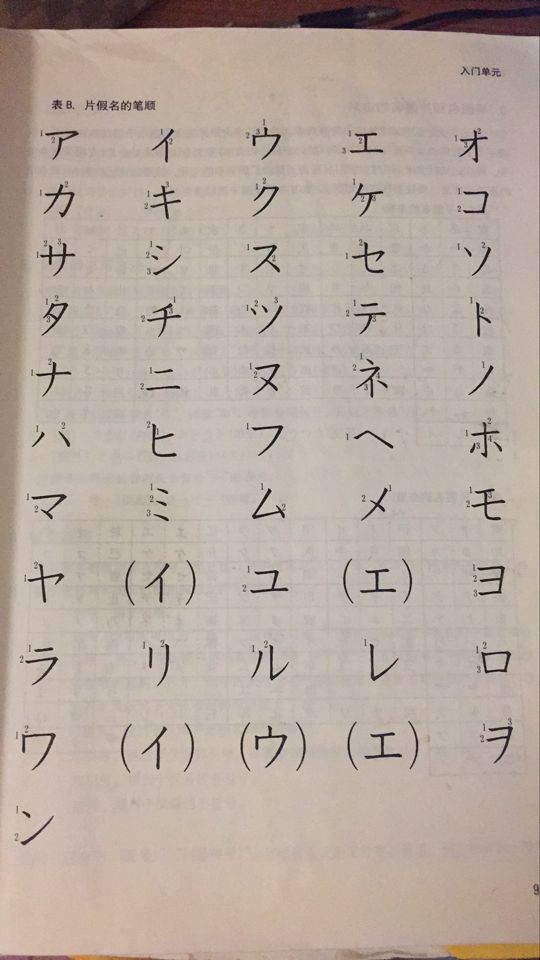 入门单元
表 B. 片假名的笔顺
ア イ ウ エ オ
カ キ ク ケ コ
サ シ ス セ ソ
タ チ ツ テ ト
ナ ニ ヌ ネ ノ
ハ ヒ フ ヘ ホ
マ ミ ム メ モ
ヤ (イ) ユ (エ) ヨ
ラ リ ル レ ロ
ワ (イ) (ウ) (エ) ヲ
ン
9